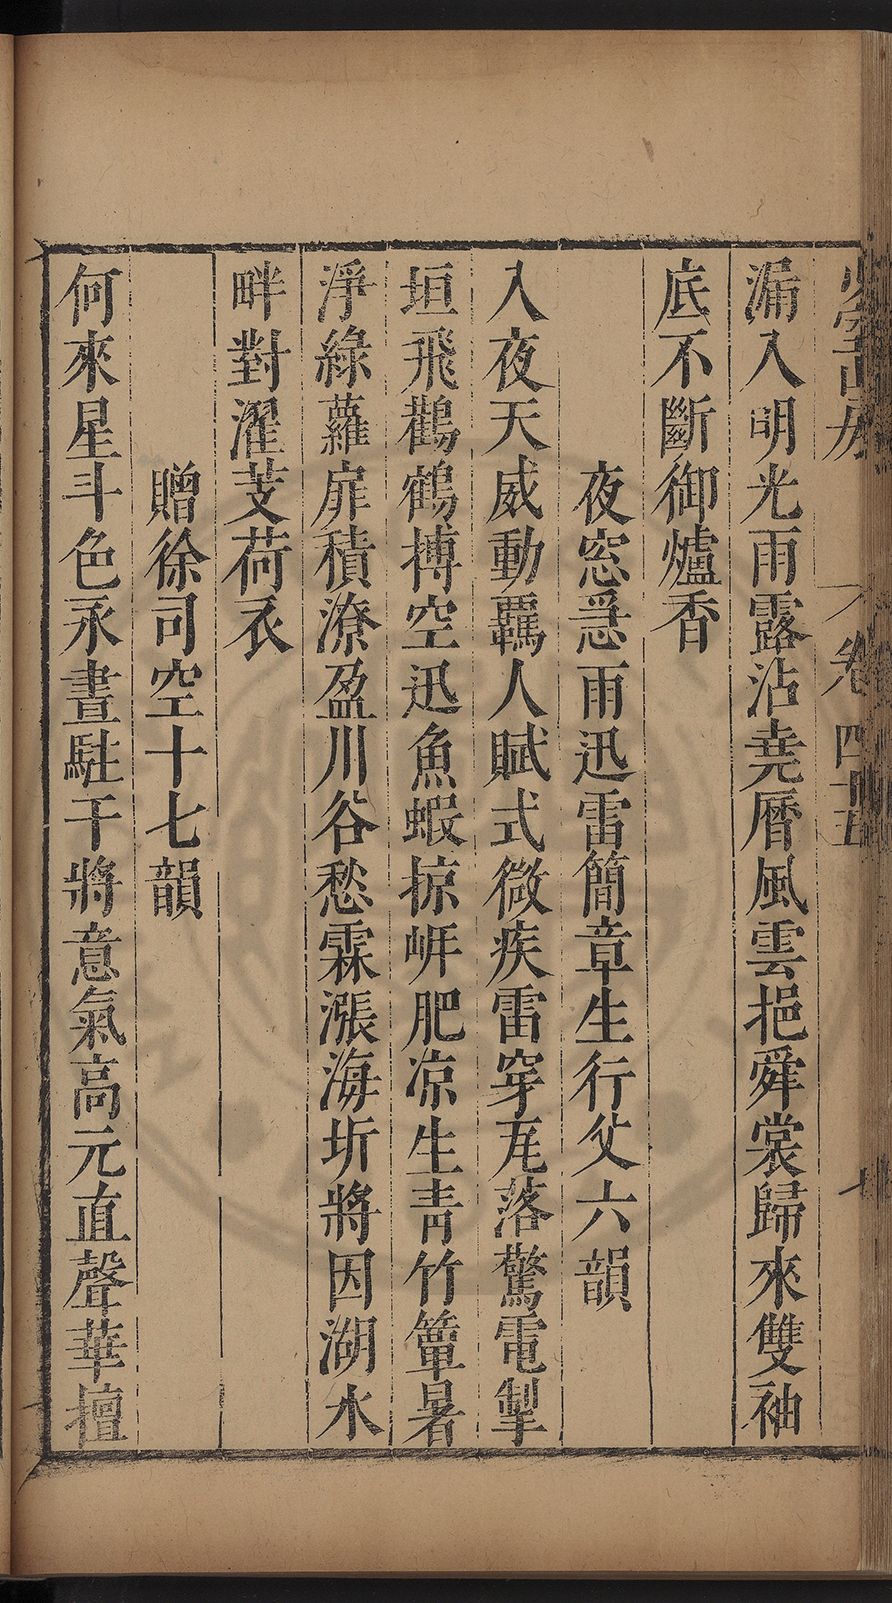 卷四十五
漏入明光雨露沾堯曆風雲挹舜裳歸來雙袖
底不斷御爐香
夜窓急雨迅雷簡章生行父六韻
入夜天威動羈人賦式微疾雷穿瓦落驚電掣
垣飛鸛鶴摶空迅魚蝦掠岸肥凉生青竹簟暑
淨綠蘿扉積潦盈川谷愁霖漲海圻將因湖水
畔對濯芰荷衣
贈徐司空十七韻
何來星斗色永晝駐干將意氣高元直聲華擅